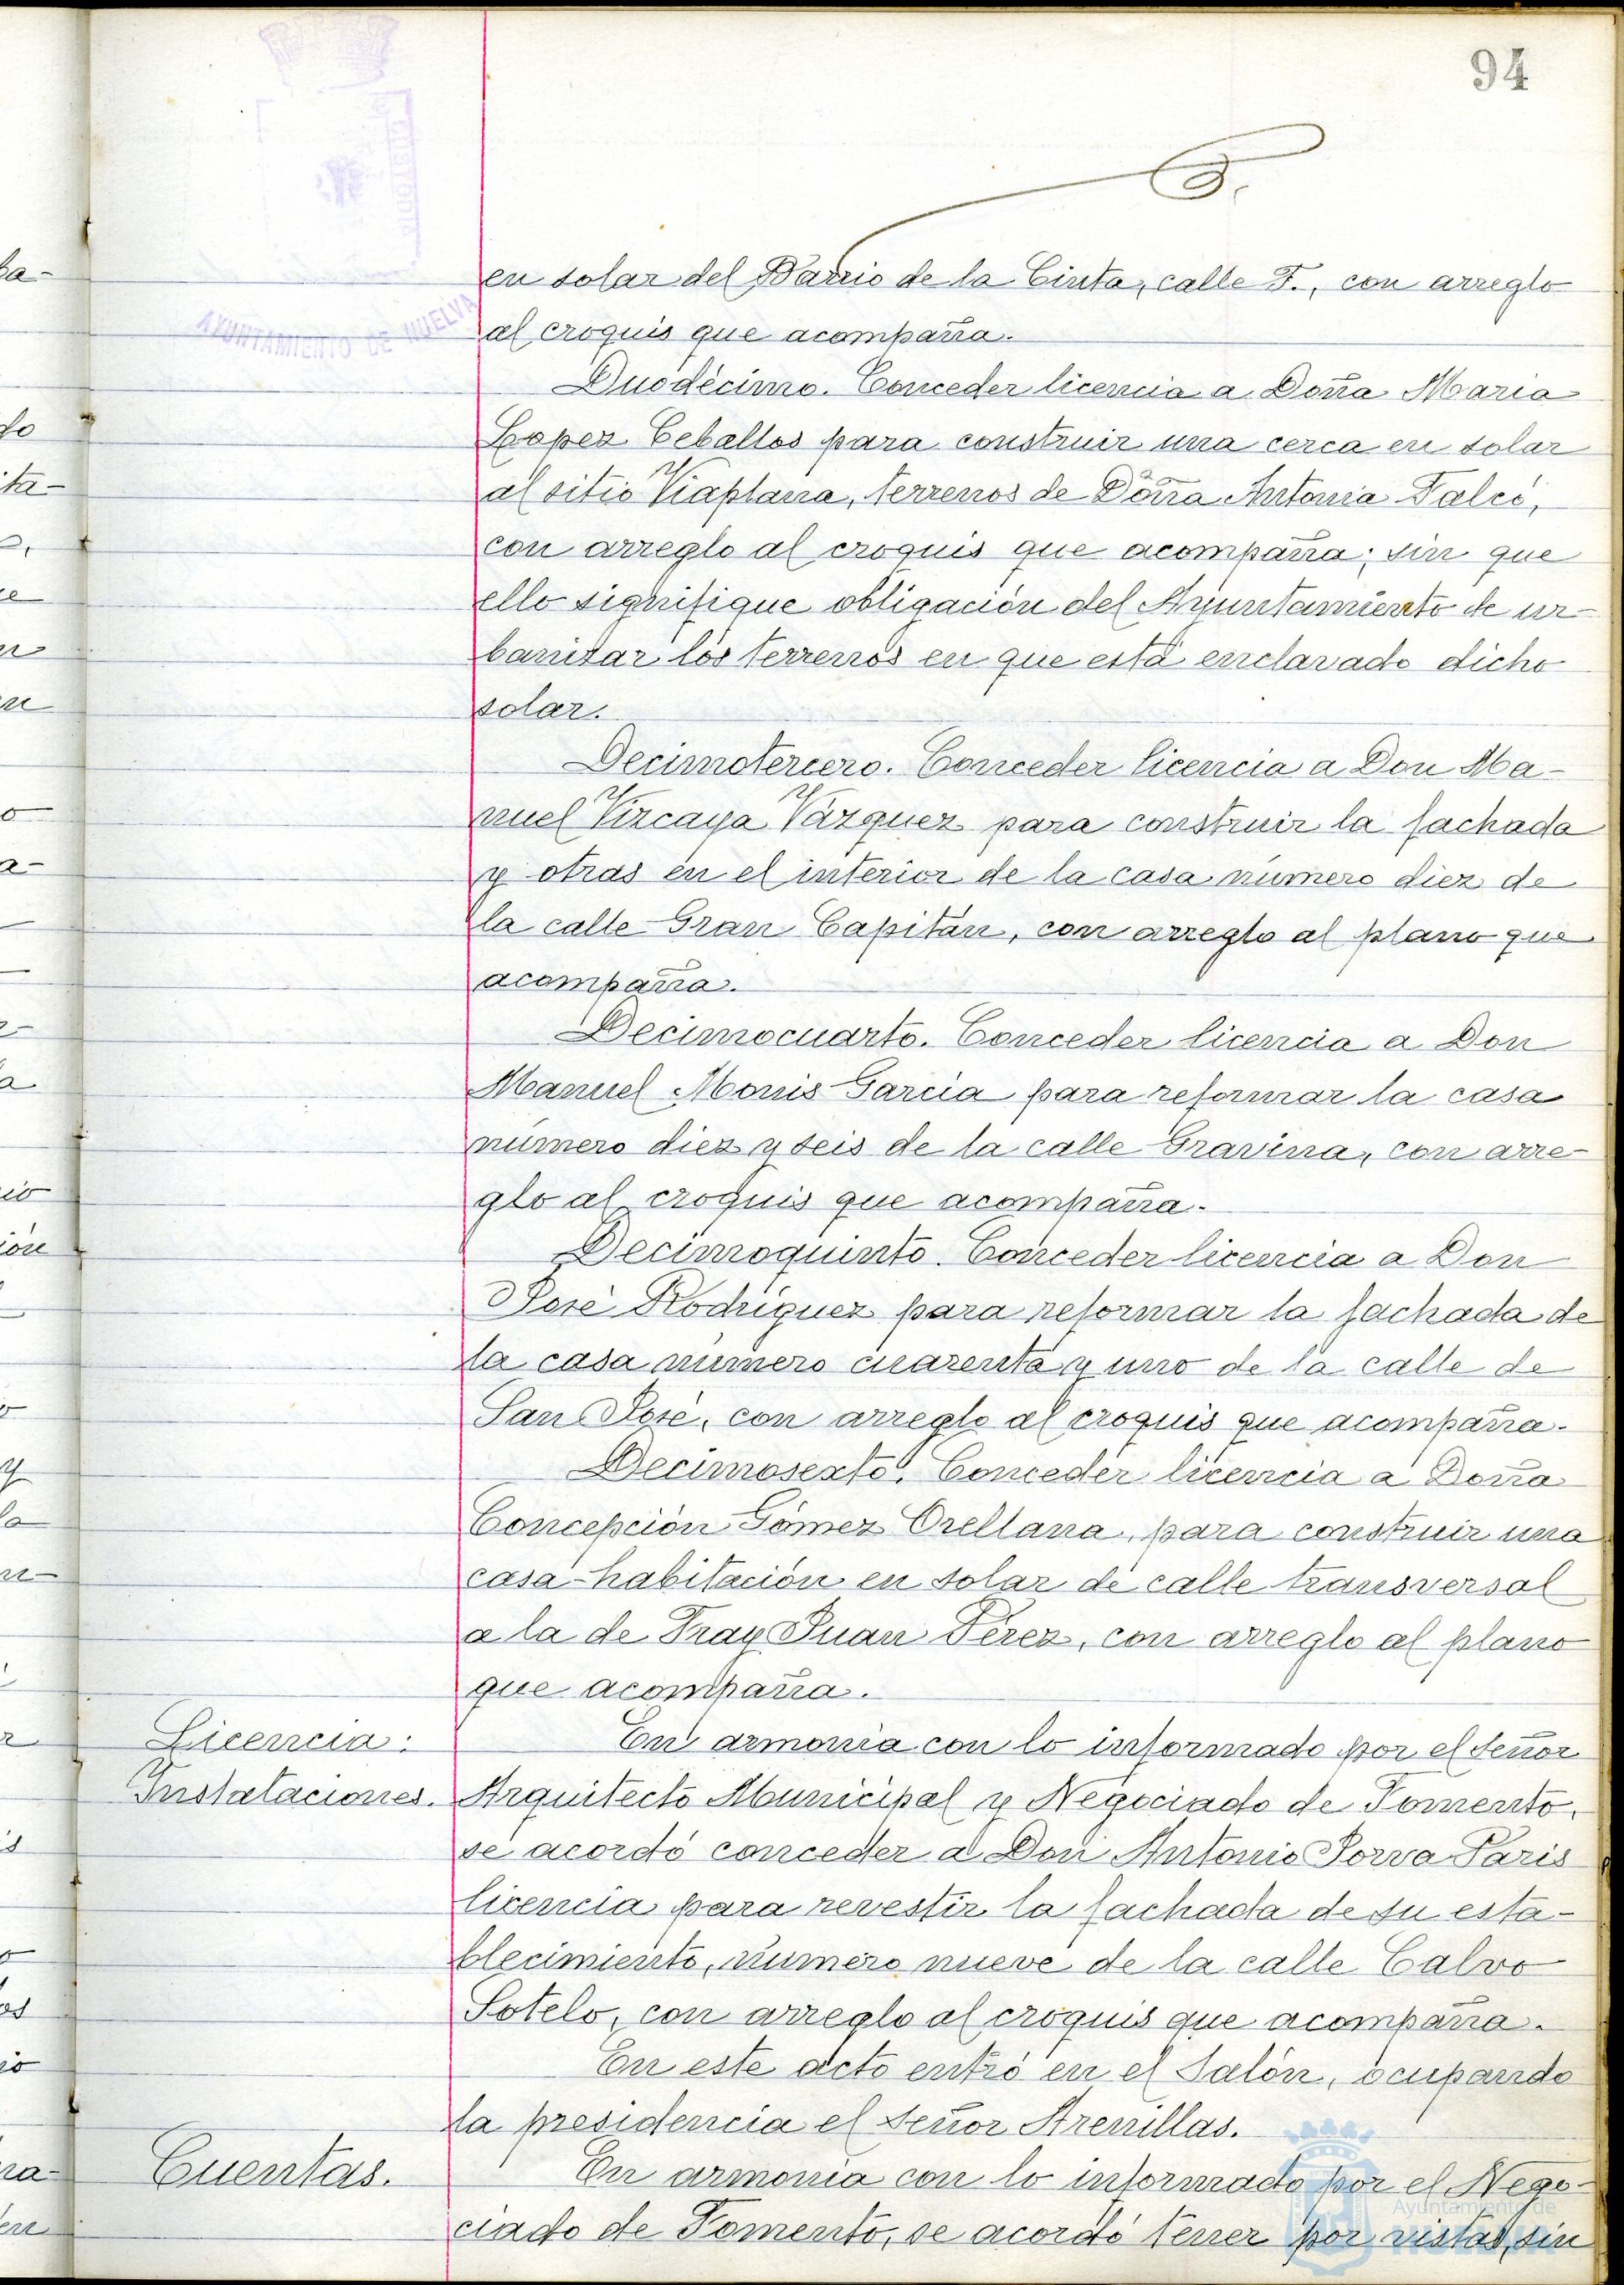 94
en solar del Barrio de la Cinta, calle F., con arreglo
AYUNTAMIENTO DE HUELVA
al croquis que acompaña.
Duodécimo. Conceder licencia a Doña Maria
Lopez Ceballos para construir una cerca en solar
al sitio Viaplana, terrenos de Doña Antonia Falcó,
con arreglo al croquis que acompaña; sin que
ello signifique obligación del Ayuntamiento de ur-
banizar los terrenos en que está enclavado dicho
solar.
Decimotercero. Conceder licencia a Don Ma-
nuel Vizcaya Vázquez para construir la fachada
y otras en el interior de la casa número diez de
la calle Gran Capitán, con arreglo al plano que
acompaña.
Decimocuarto. Conceder licencia a Don
Manuel Monis García para reformar la casa
número diez y seis de la calle Gravina, con arre-
glo al croquis que acompaña.
Decimoquinto. Conceder licencia a Don
José Rodríguez para reformar la fachada de
la casa número cuarenta y uno de la calle de
San José, con arreglo al croquis que acompaña.
Decimosexto. Conceder licencia a Doña
Concepción Gómez Orellana, para construir una
casa-habitación en solar de calle transversal
a la de Fray Juan Pérez, con arreglo al plano
que acompaña.
Licencia: En armonía con lo informado por el Señor
Instalaciones. Arquitecto Municipal y Negociado de Fomento,
se acordó conceder a Don Antonio Porva Paris
licencia para revestir la fachada de su esta-
blecimiento, número nueve de la calle Calvo
Sotelo, con arreglo al croquis que acompaña.
En este acto entró en el Salón, ocupando
la presidencia el Señor Arenillas.
Cuentas. En armonía con lo informado por el Nego-
ciado de Fomento, se acordó tener por vistas, sin
Ayuntamiento de
HUELVA